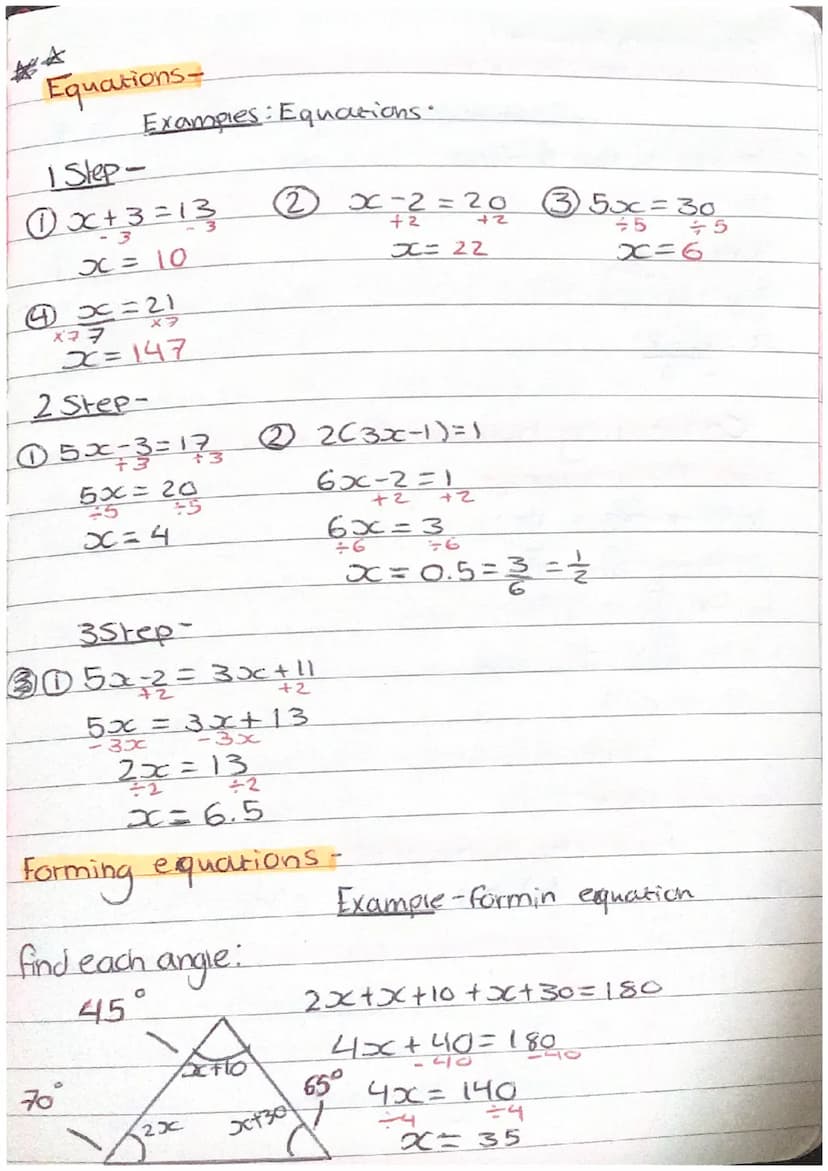 Equations-
Examples: Equations.
1 Step-
① x+3=13 ② x-2=20 ③ 5x=30
-3 -3 +2 +2 ÷5 ÷5
x=10 x=22 x=6
④ x/7=21
×7 ×7
x=147
2 Step-
① 5x-3=17 ② 2(3x-1)=1
+3 +3
5x=20 6x-2=1
÷5 ÷5 +2 +2
x=4 6x=3
÷6 ÷6
x=0.5=3/6=1/2
3 Step-
① 5x-2=3x+11
+2 +2
5x=3x+13
-3x -3x
2x=13
÷2 ÷2
x=6.5
Forming equations-
Example-formin equation
find each angle:
45° 2x+x+10+x+30=180
x+10 4x+40=180
-40 -40
70° 65° 4x=140
2x x+30 ÷4 ÷4
x=35